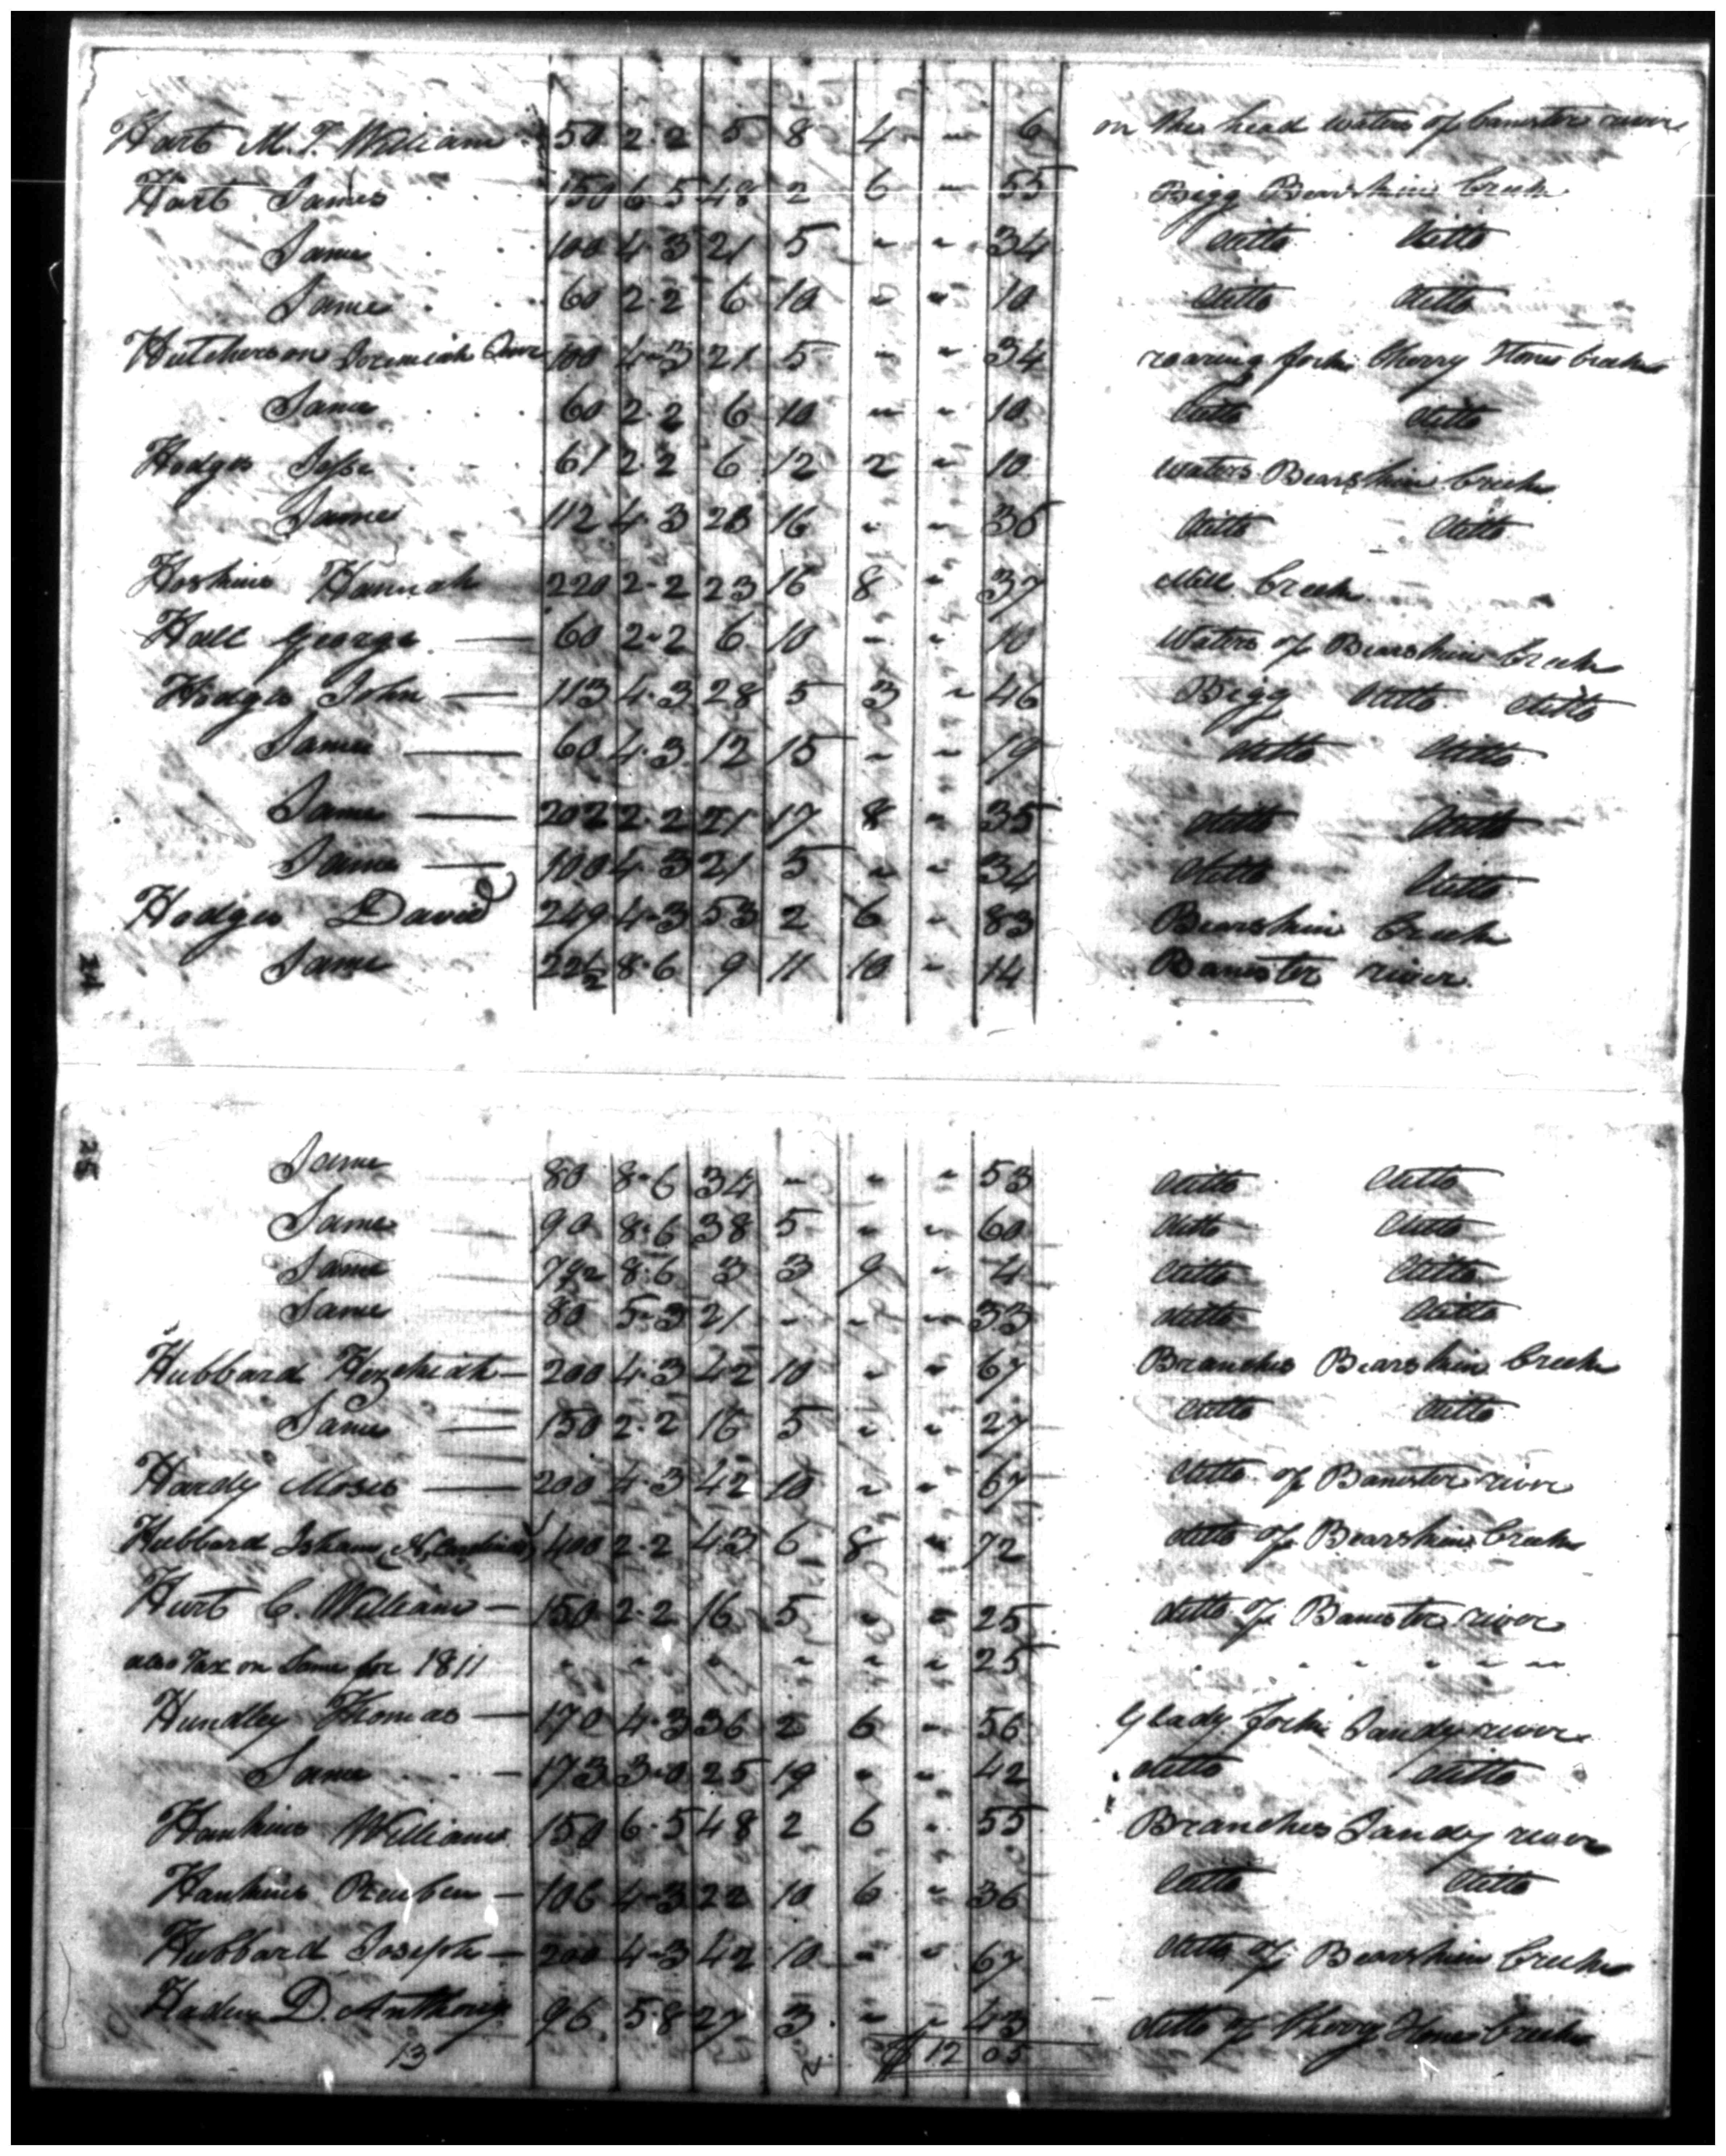 Hart M. T. William 50 2-2 5 8 4 - 6 on the head waters of banester river
Hart James 150 6-5 48 2 6 - 55 Bigg Bearskin Creek
Same 100 4-3 21 5 - - 34 ditto ditto
Same 60 2-2 6 10 - - 10 ditto ditto
Hutcherson Jeremiah 100 4-3 21 5 - - 34 roaring fork Cherry Stone Creek
Same 60 2-2 6 10 - - 10 ditto ditto
Hodges Jesse 61 2-2 6 12 2 - 10 waters Bearskin Creek
Same 112 4-3 23 16 - - 36 ditto ditto
Hoskins Hannah 220 2-2 23 16 8 - 37 Mill Creek
Hall George 60 2-2 6 10 - - 10 Waters of Bearskin Creek
Hodges John 113 4-3 28 5 3 - 46 Bigg ditto ditto
Same 60 4-3 12 15 - - 19 ditto ditto
Same 202 2-2 21 17 8 - 35 ditto ditto
Same 100 4-3 21 5 - - 34 ditto ditto
Hodges David 249 4-3 53 2 6 - 83 Bearskin Creek
Same 22½ 8-6 9 11 10 - 14 Banester river
24
25
Same 80 8-6 34 - - - 53 ditto ditto
Same 90 8-6 38 5 - - 60 ditto ditto
Same 7½ 8-6 3 3 9 - 4 ditto ditto
Same 80 5-3 21 - - - 33 ditto ditto
Hubbard Hezekiah 200 4-3 42 10 - - 67 Branches Bearskin Creek
Same 150 2-2 16 5 - - 27 ditto ditto
Hardy Moses 200 4-3 42 10 - - 67 ditto of Banester river
Hubbard Isham 400 2-2 43 6 8 - 72 ditto of Bearskin Creek
Hurt C. William 150 2-2 16 5 - - 25 ditto of Banester river
also Tax on Same for 1811 - - - - - - 25 - - - - - -
Hundley Thomas 170 4-3 36 2 6 - 56 Glady fork Sandy river
Same 173 3-0 25 19 - - 42 ditto ditto
Hankins William 150 6-5 48 2 6 - 55 Branches Sandy river
Hankins Reuben 106 4-3 22 10 6 - 36 ditto ditto
Hubbard Joseph 200 4-3 42 10 - - 67 ditto of Bearskin Creek
Haden D. Anthony 96 5-8 27 3 - - 43 ditto of Cherry Stone Creek
13 $ 12 05